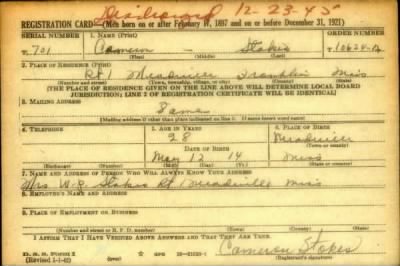 Discharged 12-23-45
REGISTRATION CARD—(Men born on or after February 17, 1897 and on or before December 31, 1921)
SERIAL NUMBER 1. NAME (Print) ORDER NUMBER
T 701 Cameron - Stokes 10624-A
(First) (Middle) (Last)
2. PLACE OF RESIDENCE (Print)
Rt 1 Meadville Franklin Miss
(Number and street) (Town, township, village, or city) (County) (State)
(THE PLACE OF RESIDENCE GIVEN ON THE LINE ABOVE WILL DETERMINE LOCAL BOARD
JURISDICTION; LINE 2 OF REGISTRATION CERTIFICATE WILL BE IDENTICAL)
3. MAILING ADDRESS
Same
(Mailing address if other than place indicated on line 2. If same insert word same)
4. TELEPHONE 5. AGE IN YEARS 6. PLACE OF BIRTH
28 Meadville
DATE OF BIRTH (Town or county)
May 12 14 Miss
(Exchange) (Number) (Mo.) (Day) (Yr.) (State or country)
7. NAME AND ADDRESS OF PERSON WHO WILL ALWAYS KNOW YOUR ADDRESS
Mrs. W.P. Stokes Rt Meadville Miss
8. EMPLOYER'S NAME AND ADDRESS
9. PLACE OF EMPLOYMENT OR BUSINESS
(Number and street or R. F. D. number) (Town) (County) (State)
I AFFIRM THAT I HAVE VERIFIED ABOVE ANSWERS AND THAT THEY ARE TRUE.
D. S. S. Form 1 GPO 16-21630-1 Cameron Stokes
(Revised 1-1-42) (over) (Registrant's signature)